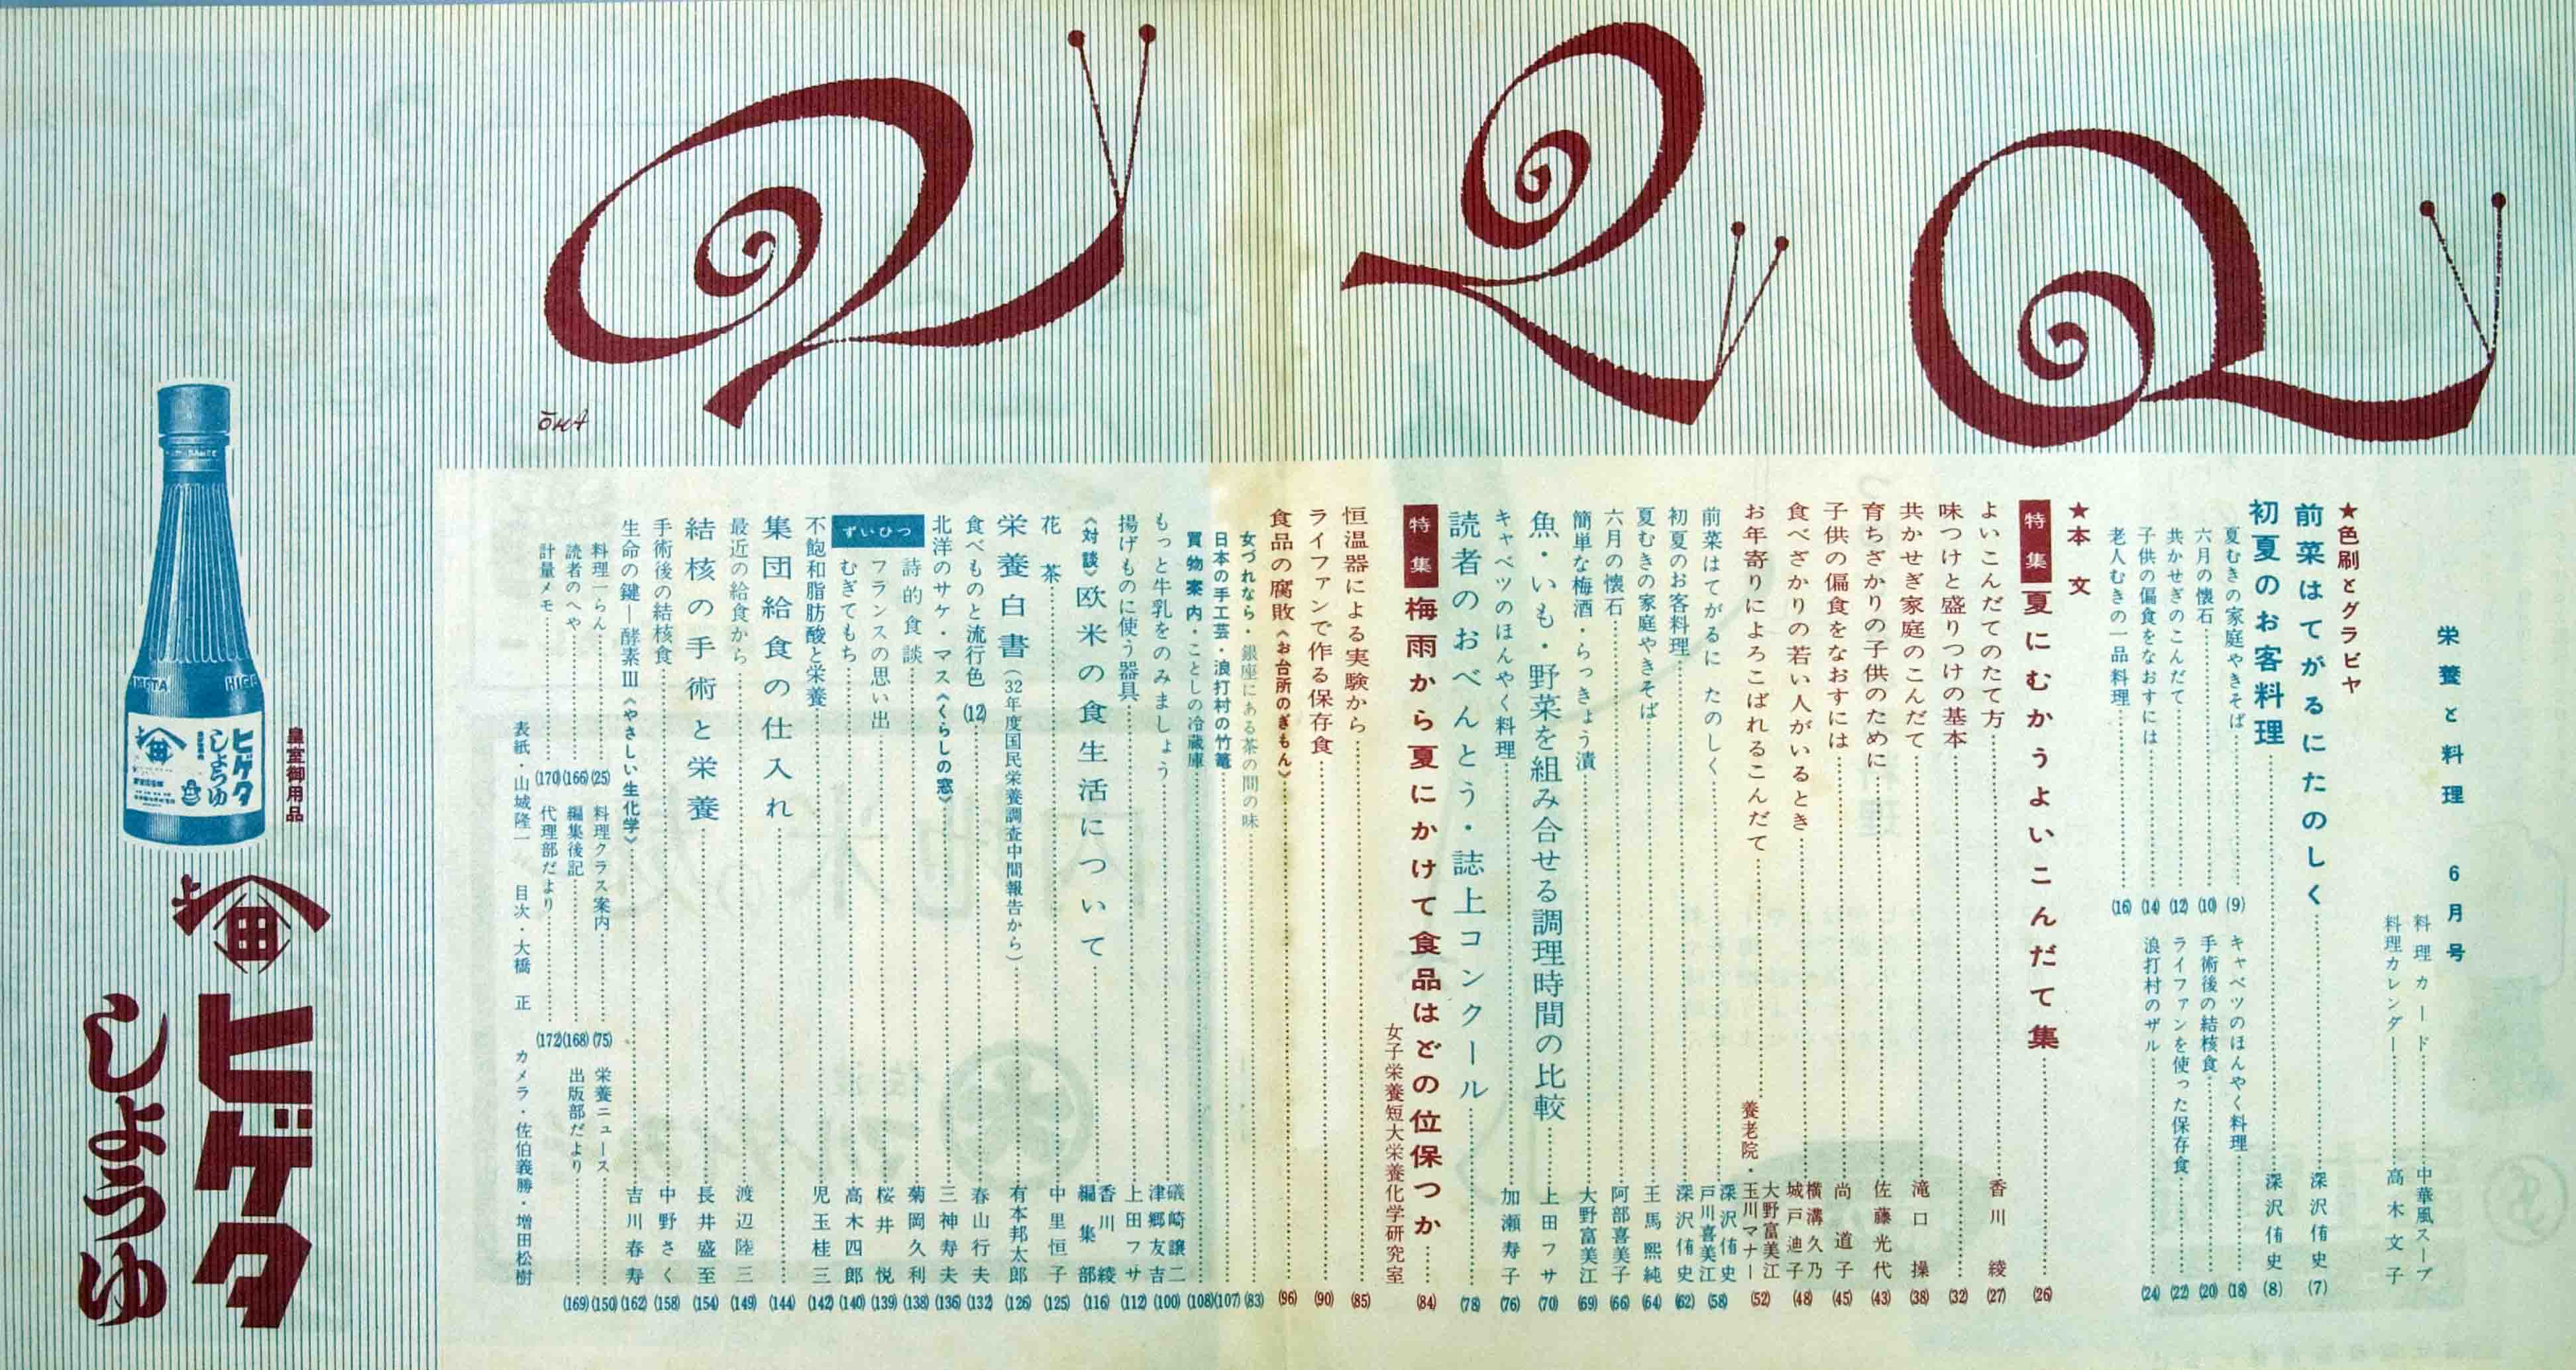 栄養と料理 6月号
料理カード……中華風スープ
料理カレンダー……高木文子
★色刷とグラビヤ
前菜はてがるにたのしく……深沢侑史(7)
初夏のお客料理……深沢侑史(8)
夏むきの家庭やきそば……(9)
六月の懐石……(10)
共かせぎのこんだて……(12)
子供の偏食をなおすには……(14)
老人むきの一品料理……(16)
キャベツのほんやく料理……(18)
手術後の結核食……(20)
ライファンを使った保存食……(22)
浪打村のザル……(24)
★本文
特集 夏にむかうよいこんだて集……(26)
よいこんだてのたて方……香川綾(27)
味つけと盛りつけの基本……(32)
共かせぎ家庭のこんだて……滝口操(38)
育ちざかりの子供のために……佐藤光代(43)
子供の偏食をなおすには……尚道子(45)
食べざかりの若い人がいるとき……横溝久乃 城戸迪子(48)
お年寄りによろこばれるこんだて……養老院・大野富美江 玉川マナー(52)
前菜はてがるに たのしく……深沢侑史 戸川喜美江(58)
初夏のお客料理……深沢侑史(62)
夏むきの家庭やきそば……王馬熙純(64)
六月の懐石……阿部喜美子(66)
簡単な梅酒・らっきょう漬……大野富美江(69)
魚・いも・野菜を組み合せる調理時間の比較……上田フサ(70)
キャベツのほんやく料理……加瀬寿子(76)
読者のおべんとう・誌上コンクール……(78)
特集 梅雨から夏にかけて食品はどの位保つか……(84)
女子栄養短大栄養化学研究室
恒温器による実験から……(85)
ライファンで作る保存食……(90)
食品の腐敗《お台所のぎもん》……(96)
女づれなら・銀座にある茶の間の味……(83)
日本の手工芸・浪打村の竹籠……(107)
買物案内・ことしの冷蔵庫……(108)
もっと牛乳をのみましょう……礒崎譲二 津郷友吉(100)
揚げものに使う器具……上田フサ(112)
《対談》欧米の食生活について……香川綾 編集部(116)
花茶……中里恒子(125)
栄養白書(32年度国民栄養調査中間報告から)……有本邦太郎(126)
食べものと流行色(12)……春山行夫(132)
北洋のサケ・マス《くらしの窓》……三神寿夫(136)
ずいひつ
詩的食談……菊岡久利(138)
フランスの思い出……桜井悦(139)
むぎてもち……高木四郎(140)
不飽和脂肪酸と栄養……児玉桂三(142)
集団給食の仕入れ……(144)
最近の給食から……渡辺陸三(149)
結核の手術と栄養……長井盛至(154)
手術後の結核食……中野さく(158)
生命の鍵―酵素Ⅲ《やさしい生化学》……吉川春寿(162)
料理一らん……(25)
料理クラス案内……(75)
栄養ニュース……(150)
読者のへや……(166)
編集後記……(168)
出版部だより……(169)
計量メモ……(170)
代理部だより……(172)
表紙・山城隆一 目次・大橋正 カメラ・佐伯義勝・増田松樹
ŌHA
皇室御用品
META
HIGE
ヒゲタ
しょうゆ
上
田
ヒゲタ
しょうゆ